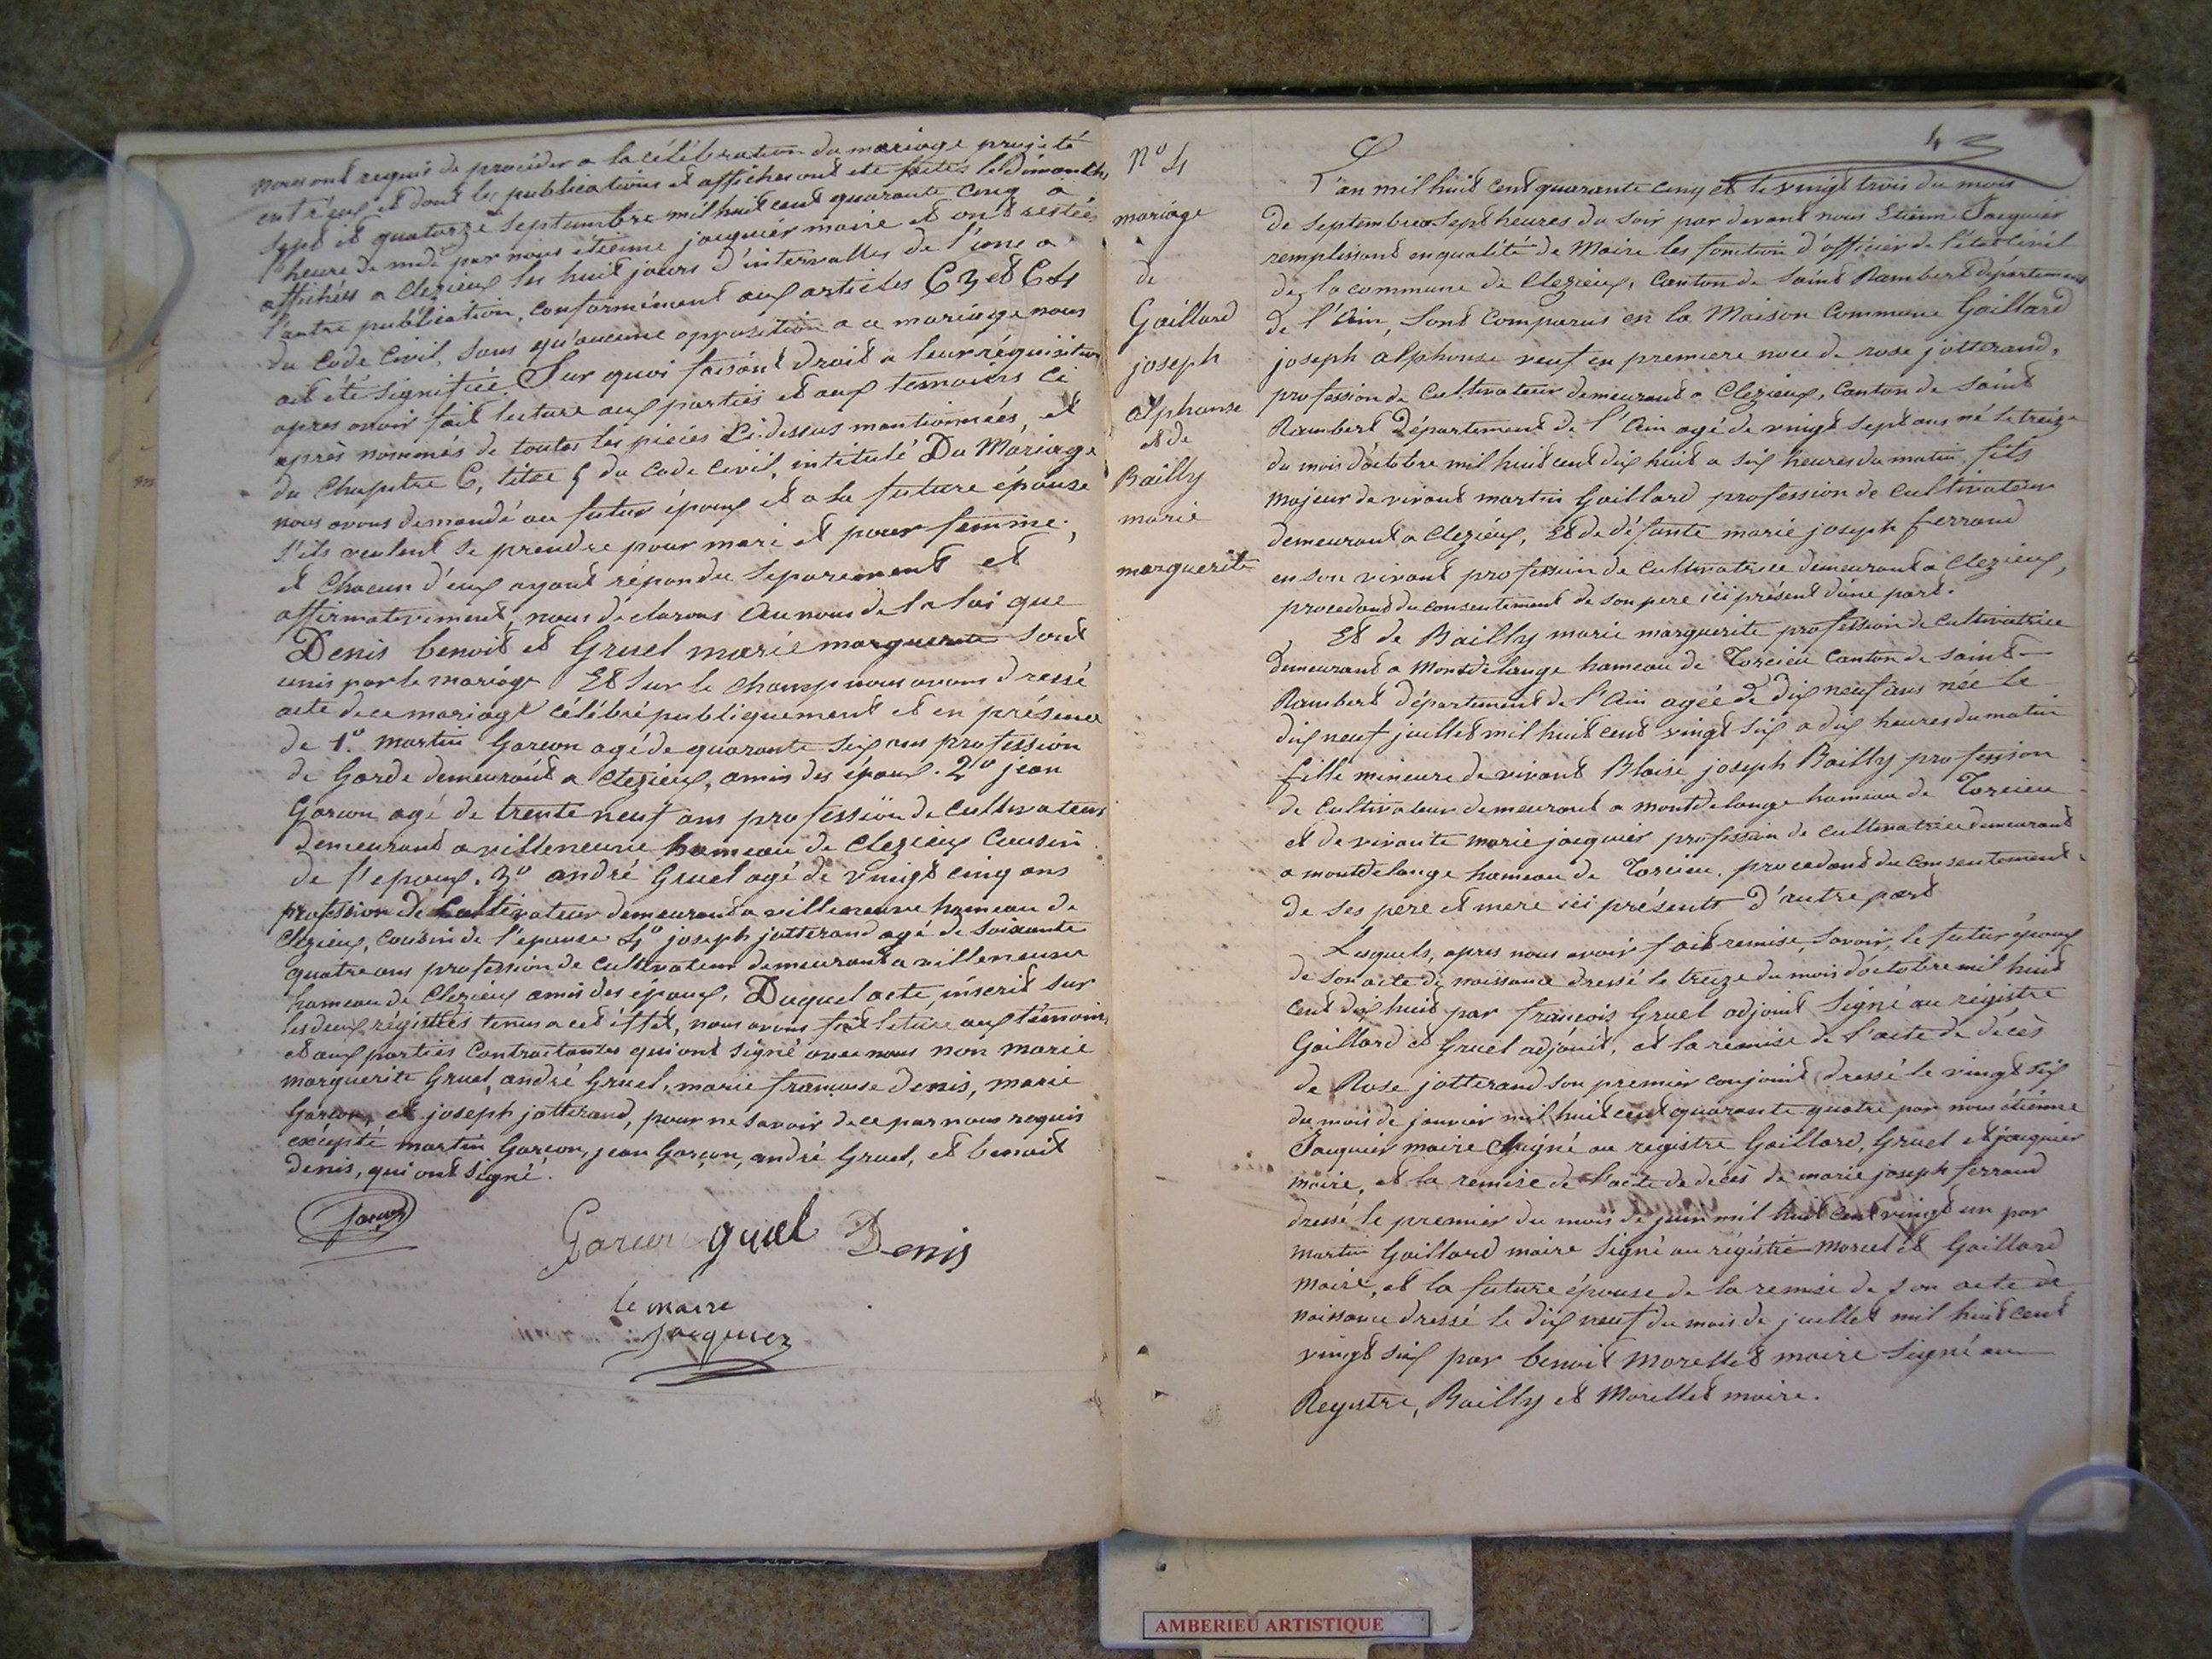 nous ont requis de procéder a la célébration du mariage projeté
entr'eux et dont les publications et affiches ont été faites les Dimanches
sept et quatorze septembre mil huit cent quarante cinq a
l'heure de midi par nous étienne jacquier maire et ont restées
affichées a Clezieux les huit jours d'intervalles de l'une a
l'autre publication, conformément aux articles 63 et 64
du Code Civil, sans qu'aucune opposition a ce mariage nous
ait été signifiée. Sur quoi faisant droit a leur réquisition
apres avoir fait lecture aux parties et aux temoins ci
après nommés de toutes les pieces ci-dessus mentionnées, et
du Chapitre 6, titre 5 du Code Civil, intitulé Du Mariage
nous avons demandé au futur époux et a la future épouse
s'ils veulent se prendre pour mari et pour femme,
et Chacun d'eux ayant répondu séparement et
affirmativement, nous déclarons au nom de la loi que
Denis benoit et Gruel marie marguerite sont
unis par le mariage Et sur le champ nous avons dressé
acte de ce mariage célébré publiquement et en présence
de 1º. martin Garcon agé de quarante six ans profession
de Garde demeurant a Clezieux, amis des époux. 2º jean
Garcon agé de trente neuf ans profession de Cultivateur
demeurant a villeneuve hameau de Clezieux Cousin
de l'epoux. 3º andré Gruel agé de vingt cinq ans
profession de Cultivateur demeurant a villeneuve hameau de
Clezieux, cousin de l'epouse 4º joseph jotterand agé de soixante
quatre ans profession de cultivateur demeurant a villeneuve
hameau de Clezieux amis des époux. Duquel acte, inscrit sur
les deux régistres tenus a cet éffet, nous avons fait lecture aux témoins
et aux parties Contractantes qui ont signé avec nous non marie
marguerite Gruel, andré Gruel, marie francoise denis, marie
Garcon, et joseph jotterand, pour ne savoir de ce par nous requis
excepté martin Garcon, jean Garcon, andré Gruel, et benoit
denis, qui ont signé.
Garcon
Garcon gruel Denis
le maire
Jacquier
Nº 4
mariage
de
Gaillard
joseph
alphonse
et de
Bailly
marie
marguerite
4
L'an mil huit cent quarante cinq et le vingt trois du mois
de septembre a sept heures du soir par devant nous Etienne Jacquier
remplissant en qualité de Maire les fonction d'officier de l'état Civil
de la commune de Clezieux, Canton de Saint Rambert département
de l'Ain, sont comparus en la Maison Commune Gaillard
joseph alphonse veuf en premiere noce de rose jotterand,
profession de Cultivateur demeurant a Clezieux, Canton de Saint
Rambert Département de l'Ain agé de vingt sept ans né le treize
du mois d'octobre mil huit cent dix huit a six heures du matin, fils
majeur de vivant martin Gaillard profession de Cultivateur
demeurant a Clezieux, Et de défunte marie joseph ferrand
en son vivant profession de Cultivatrice demeurant a Clezieux,
procedant du consentement de son pere ici présent d'une part.
Et de Bailly marie marguerite profession de Cultivatrice
demeurant a Montdelange hameau de Torcieu Canton de Saint
Rambert département de l'Ain agée de dix neuf ans née le
dix neuf juillet mil huit cent vingt six a dix heures du matin
fille mineure de vivant Blaise joseph Bailly profession
de Cultivateur demeurant a montdelange hameau de Torcieu
et de vivante marie jacquier profession de cultivatrice demeurant
a montdelange hameau de Torcieu, procedant du consentement
de ses pere et mere ici présents d'autre part
Lesquels, apres nous avoir fait remise, savoir, le futur époux
de son acte de naissance dressé le treize du mois d'octobre mil huit
cent dix huit par francois Gruel adjoint signé au régistre
Gaillard et Gruel adjoint, et la remise de l'acte de décès
de Rose jotterand son premier conjoint dressé le vingt six
du mois de janvier mil huit cent quarante quatre par nous étienne
Jacquier maire signé au registre Gaillard, Gruel et jacquier
maire, et la remise de l'acte de décès de marie joseph ferrand
dressé le premier du mois de juin mil huit cent vingt un par
martin Gaillard maire signé au régistre morel et Gaillard
Maire, et la future épouse de la remise de son acte de
naissance dressé le dix neuf du mois de juillet mil huit cent
vingt six par benoit Morellet maire signé au
Registre, Bailly et Morellet maire.
AMBERIEU ARTISTIQUE